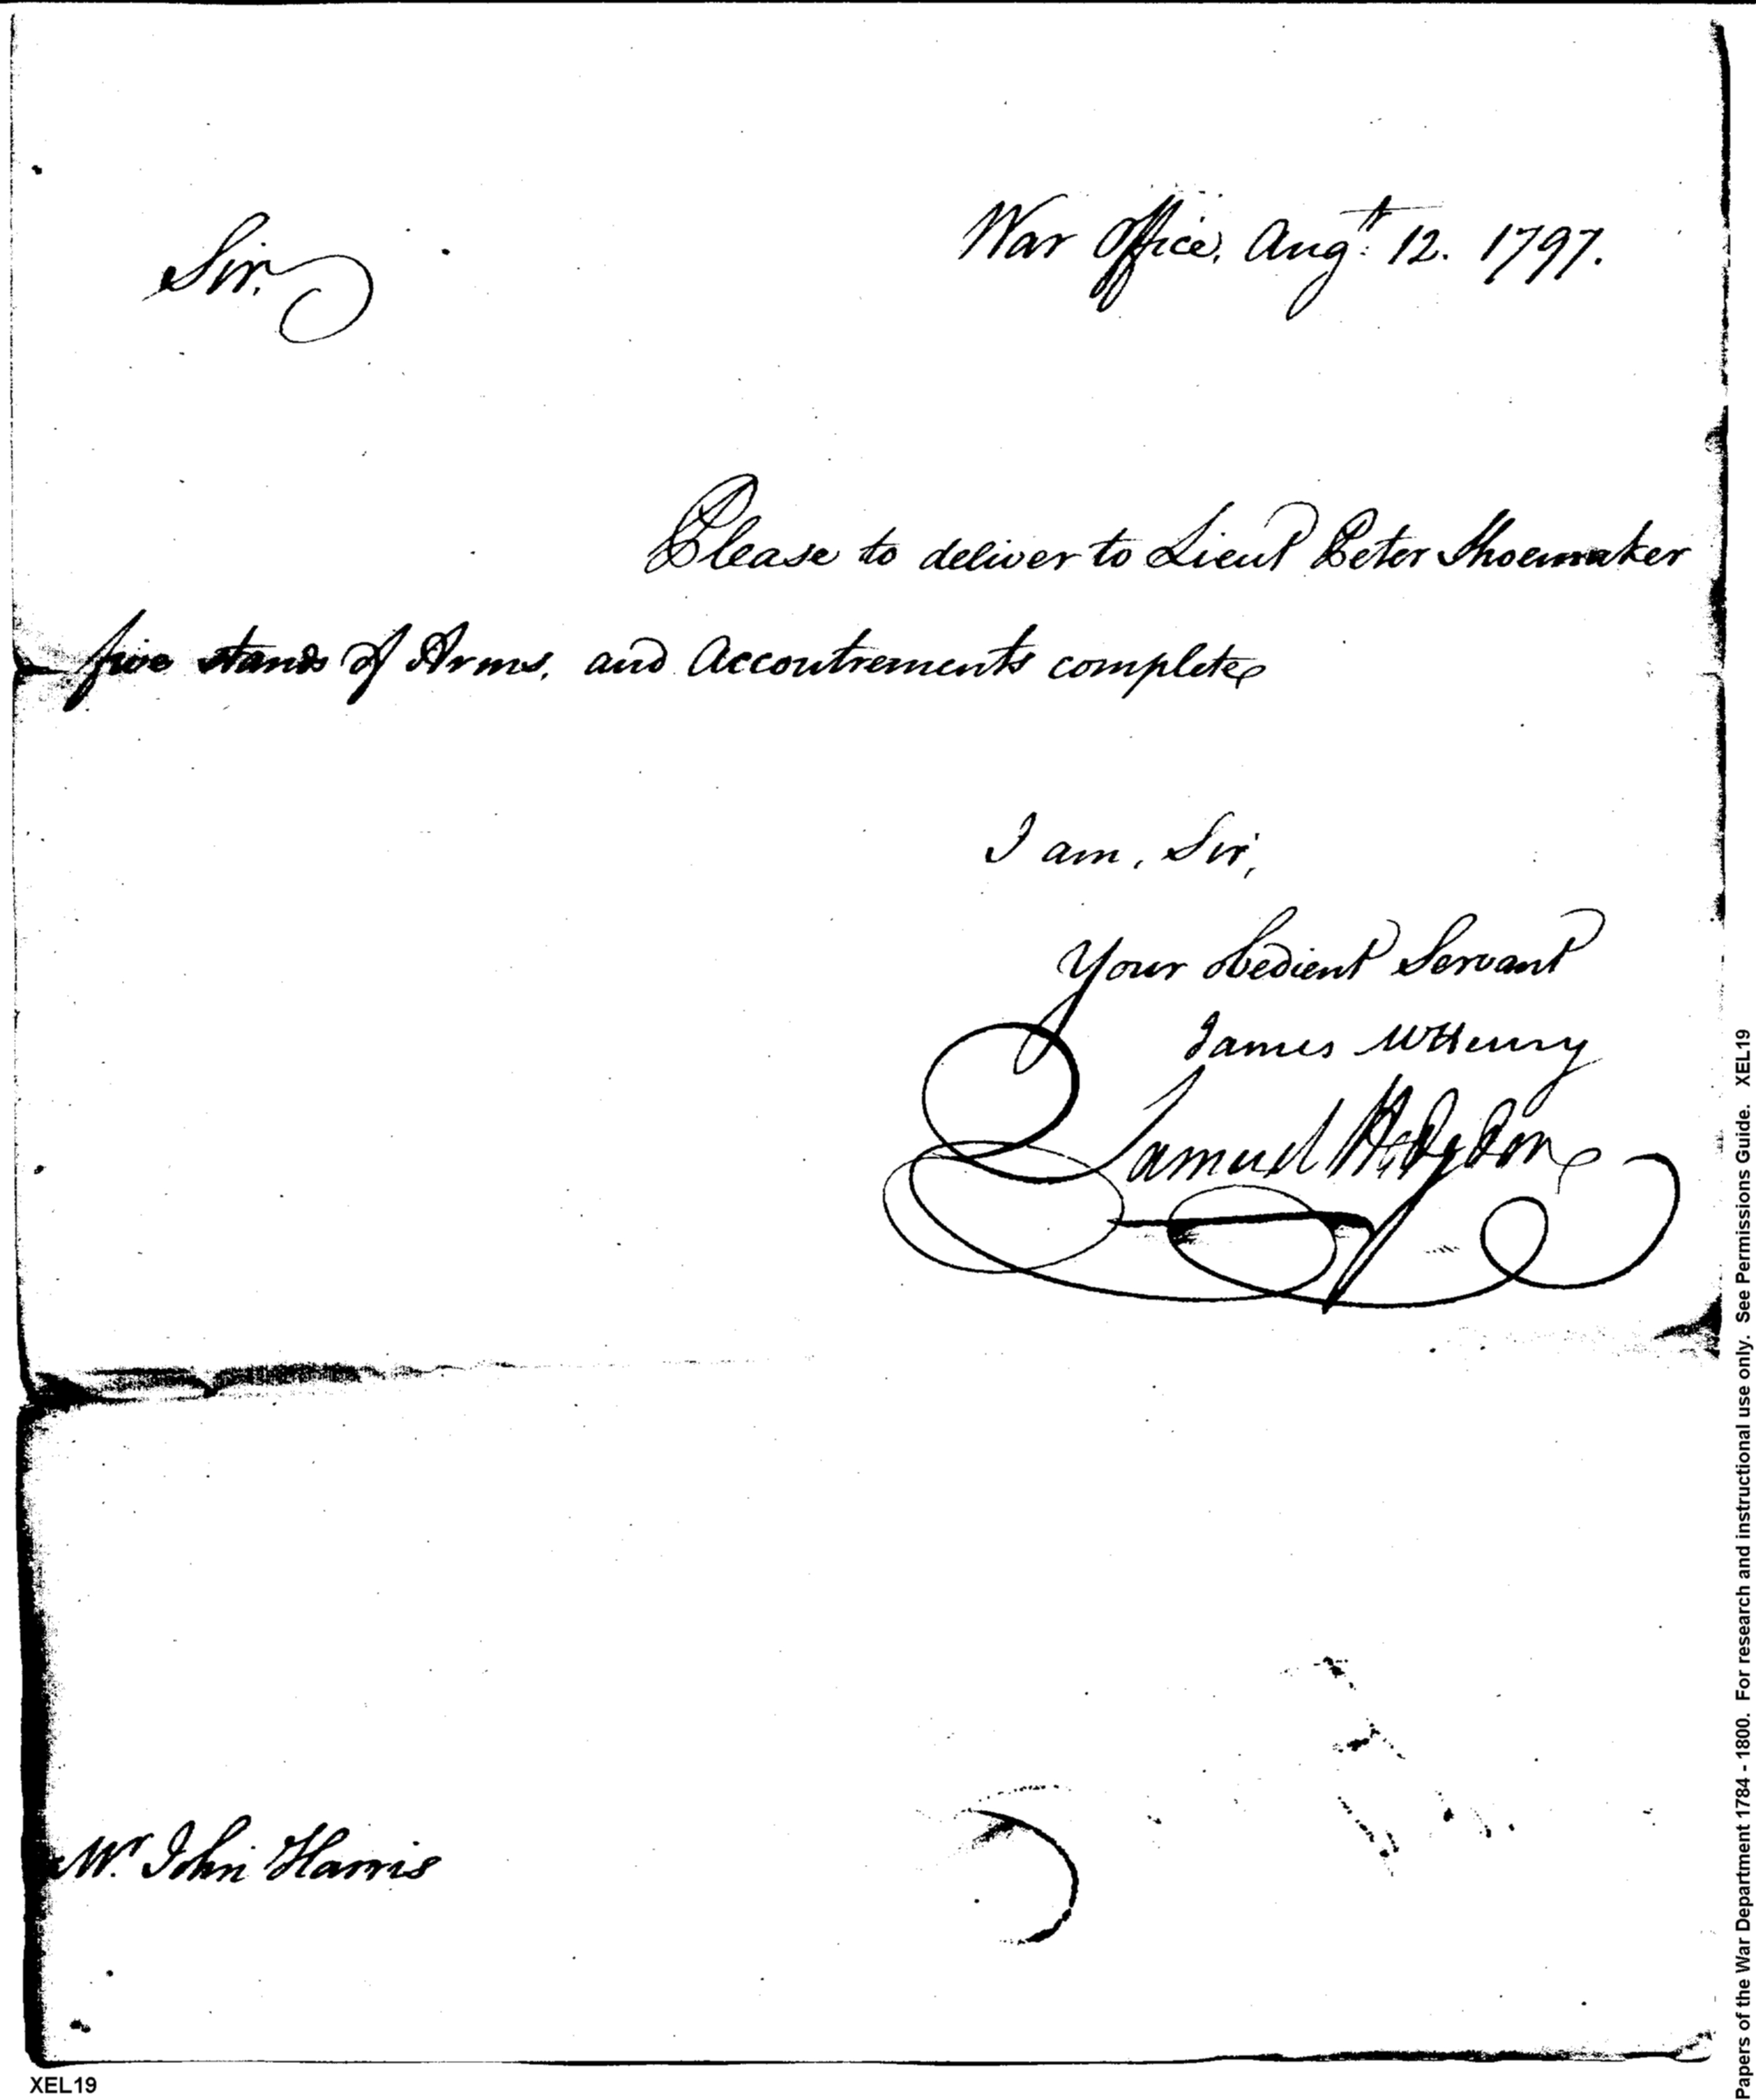 War Office, Augt. 12. 1797.
Sir.
Please to deliver to Lieut Peter Shoemaker
five stands of Arms, and Accoutrements complete
I am, Sir,
Your obedient Servant
James McHenry
Samuel Hodgdon
Mr. John Harris
XEL19
Papers of the War Department 1784 - 1800. For research and instructional use only. See Permissions Guide. XEL19